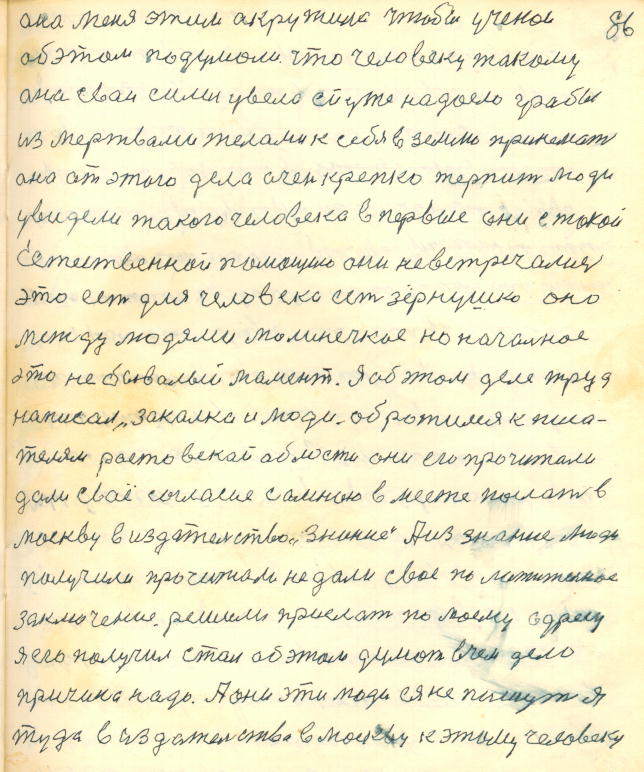 она меня этим акружила чтобы ученои 86
обэтом подумоли. что человеку такому
она сваи силы увело ейуже надоело гробы
из мертвами телами к себя в землю принемат
она от этого дела очен крепко терпит люди
увидели такого человека в первые они с такой
естественной помощию они невстречалис
это ест для человека ест зёрнушко оно
между людями малинечкое но началное
это небывалый мамент. Я обэтом деле труд
написал „закалка и люди. обротился к писа-
телям растовскай абласти они его прочитали
дали сваё согласие самною вместе послат в
москву в издателство „Знание“ А из знание люди
получили прочитали недали свое положителное
заключение. решили прислат по моему адресу
я его получил стал обэтом думат вчем дело
причина надо. А они эти люди ся не пишут я
туда в издателства в москву к этому человеку